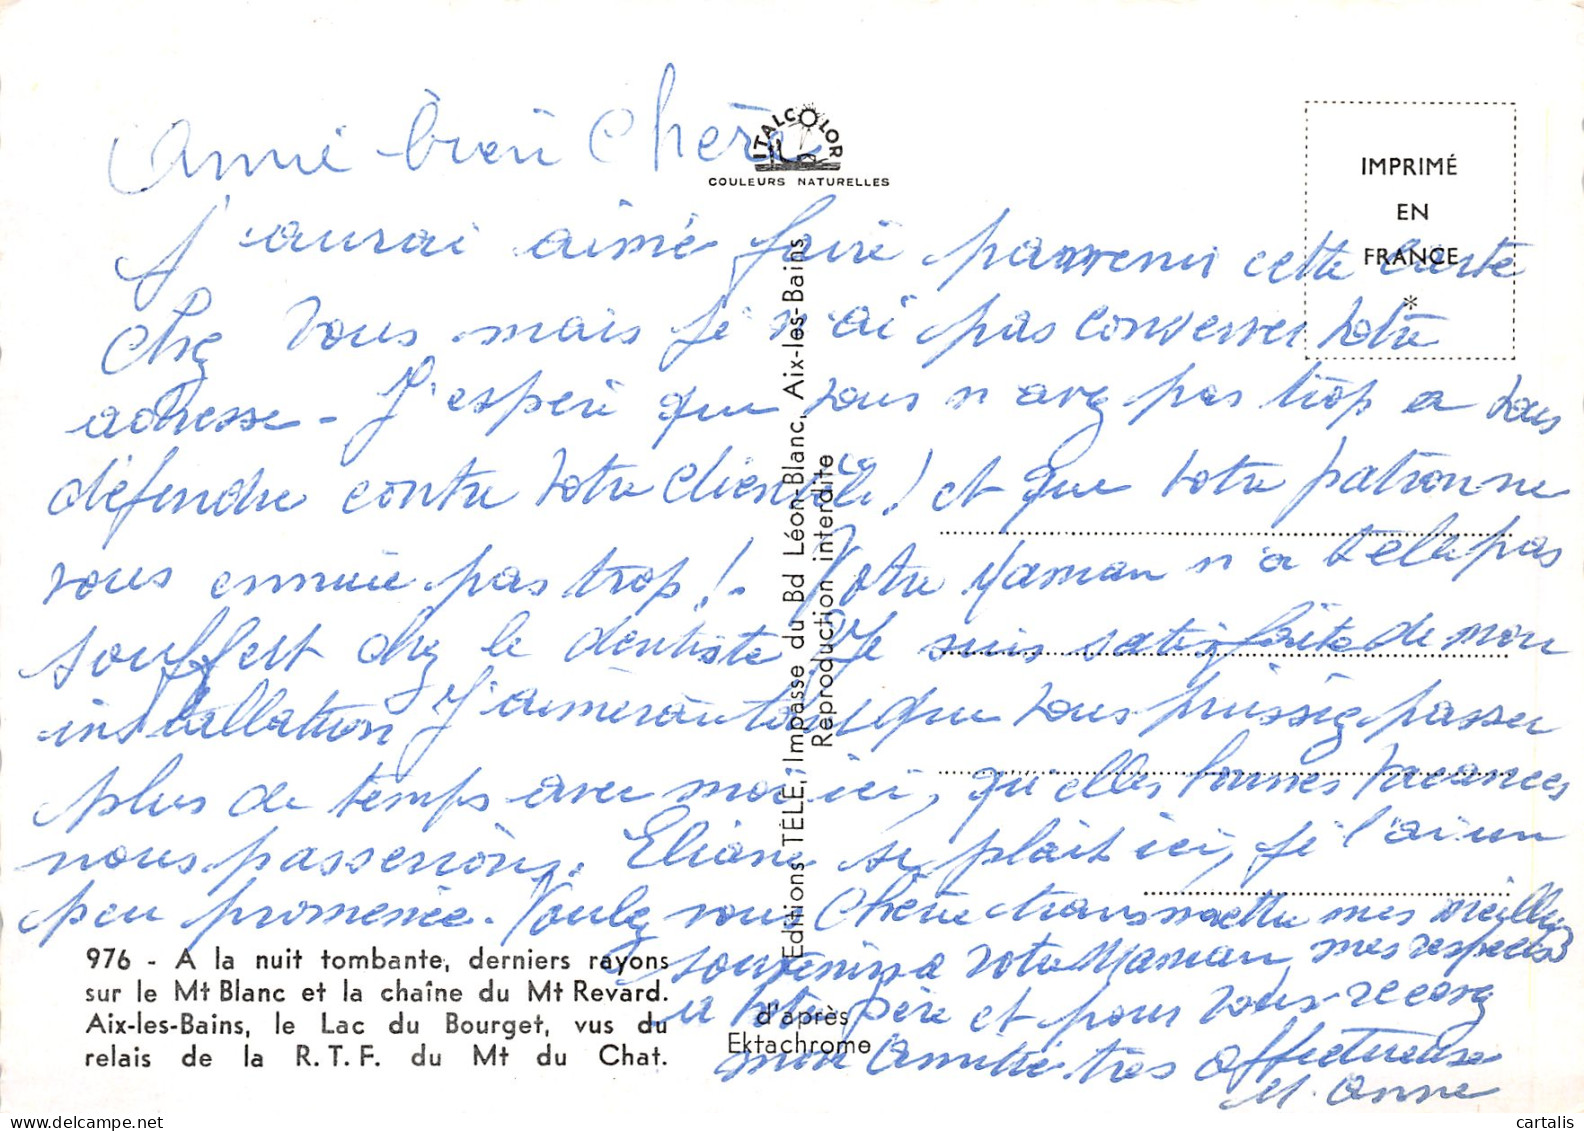 Amie bien Chère
ITALCOLOR
COULEURS NATURELLES
IMPRIMÉ
EN
FRANCE
*
J'aurai aimé faire parvenir cette carte
chez vous mais je n'ai pas conserver votre
adresse - J'espère que vous n'avez pas trop a vous
défendre contre votre clientèle! et que votre patronne
vous ennuie pas trop! - Votre Maman n'a t'elle pas
souffert chez le dentiste Je suis satisfaite de mon
installation J'aimerai tant que vous puissiez passer
plus de temps avec moi ici, qu'elles bonnes vacances
nous passerions. Eliane se plait ici, je l'ai un
peu promenée. Voulez vous Chère transmettre mes meilleurs
souvenirs a votre Maman, mes respects
a votre père et pour vous recevez
mon Amitié très affectueuse
M. Anne
976 - A la nuit tombante, derniers rayons
sur le Mt Blanc et la chaîne du Mt Revard.
Aix-les-Bains, le Lac du Bourget, vus du
relais de la R.T.F. du Mt du Chat.
Editions TÉLÉ, Impasse du Bd Léon-Blanc, Aix-les-Bains
Reproduction interdite
d'après
Ektachrome
cartalis